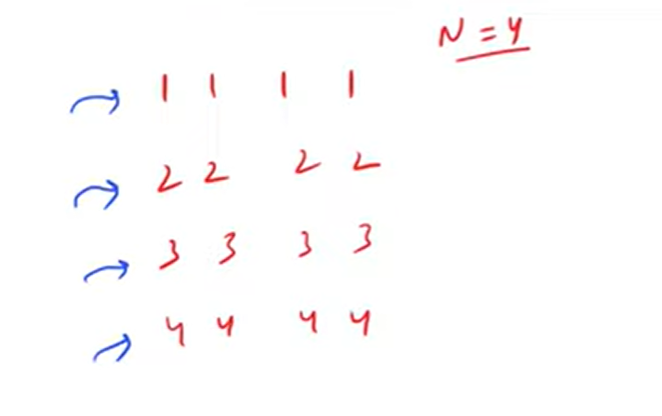 N = 4
1 1 1 1
2 2 2 2
3 3 3 3
4 4 4 4